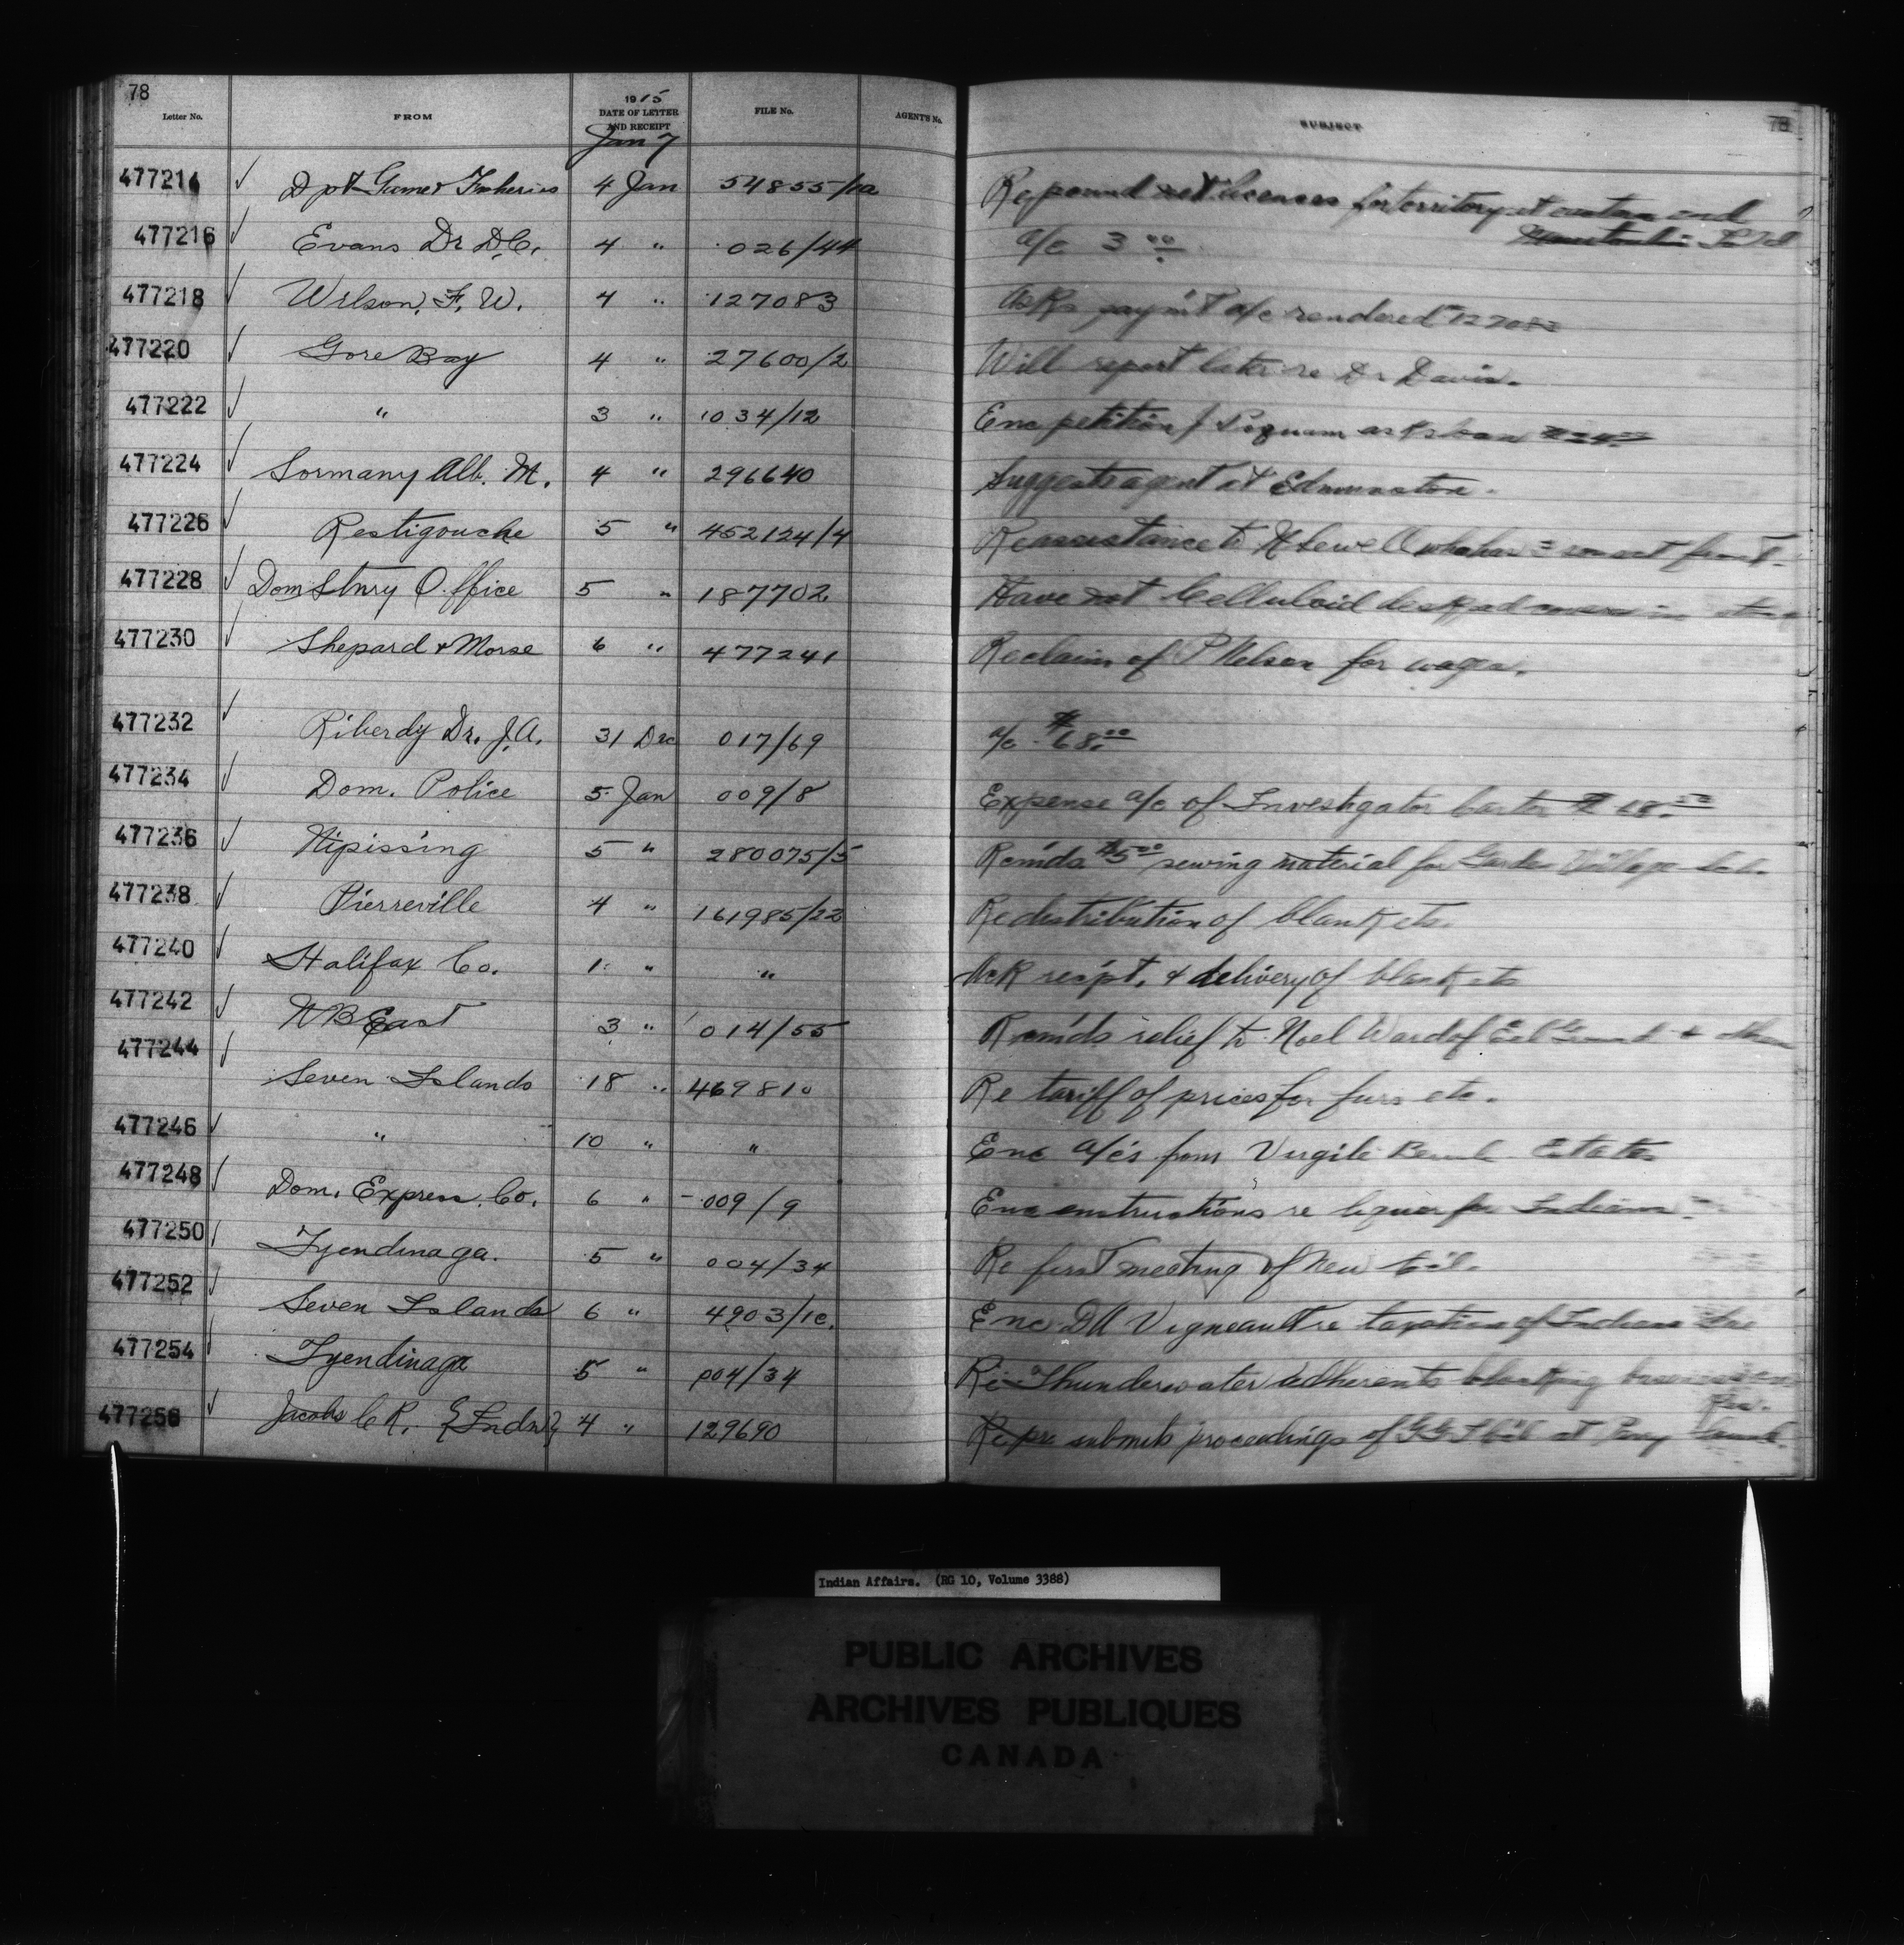 78
78
Letter No. FROM 1915 DATE OF LETTER AND RECEIPT FILE No. AGENT'S No. SUBJECT
Jan 7
477214 ✓ Dpt Game & Fisheries 4 Jan 54855/1a Re pound net licenses for territory at eastern end
477216 ✓ Evans Dr D.C. 4 " 026/44 a/c 3 00
477218 ✓ Wilson, F. W. 4 " 127083 Asks paym't a/c rendered 127083
477220 ✓ Gore Bay 4 " 27600/2 Will report later re Dr Davis.
477222 ✓ " 3 " 1034/12 Enc petition J asks loan
477224 ✓ Sormany Alb. M. 4 " 296640 Suggests agent at Edmunston.
477226 ✓ Restigouche 5 " 452124/4 Re assistance to Sewell
477228 ✓ Dom Stnry Office 5 " 187702 Have not Celluloid desk pad
477230 ✓ Shepard & Morse 6 " 477241 Re claim of P Nelson for wages.
477232 ✓ Riberdy Dr. J.A. 31 Dec 017/69 a/c $68.00
477234 ✓ Dom. Police 5 Jan 009/8 Expense a/c of Investigator Carter
477236 ✓ Nipissing 5 " 280075/5 Recmds $5.00 sewing material for Garden Village
477238 ✓ Pierreville 4 " 161985/22 Re distribution of blankets.
477240 ✓ Halifax Co. 1 " " Ack recpt. & delivery of blankets
477242 ✓ N B East 3 " 014/55 Recmds relief to Noel Ward of Eel Ground &
477244 ✓ Seven Islands 18 " 469810 Re tariff of prices for furs etc.
477246 ✓ " 10 " " Enc a/cs from Virgile Estate
477248 ✓ Dom. Express Co. 6 " 009/9 Enc instructions re liquor for Indians
477250 ✓ Tyendinaga. 5 " 004/34 Re first meeting of new
477252 ✓ Seven Islands 6 " 4903/1c. Enc D A Vigneault re taxation of Indians
477254 ✓ Tyendinaga 5 " 004/34 Re Thunderwater adherents blocking business
477256 ✓ Jacobs C R. {Indn} 4 " 129690 submits proceedings of at Parry
Indian Affairs. (RG 10, Volume 3388)
PUBLIC ARCHIVES
ARCHIVES PUBLIQUES
CANADA